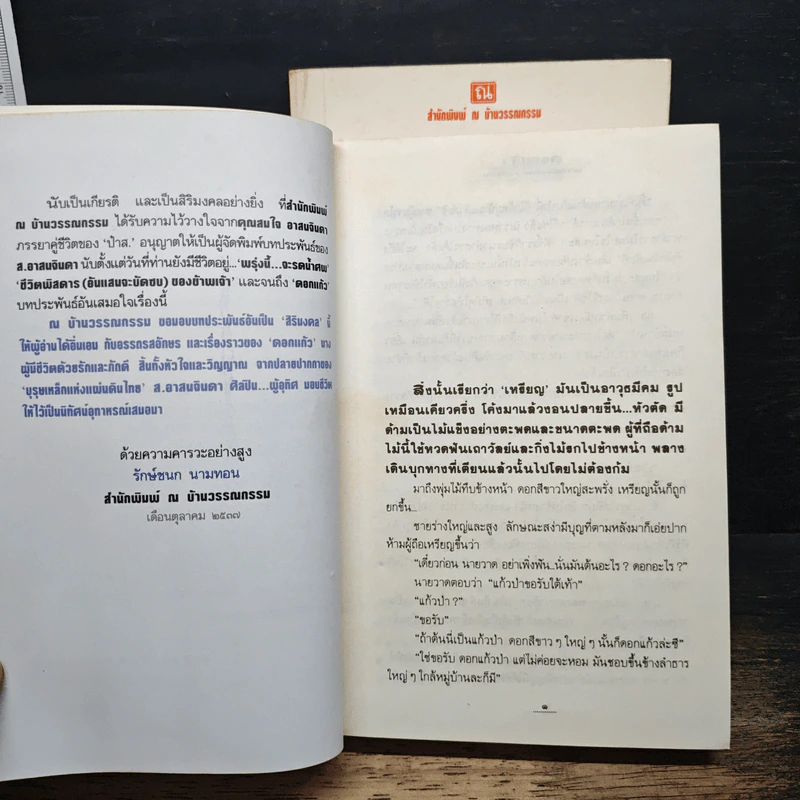 ณ
สำนักพิมพ์ ณ บ้านวรรณกรรม
นับเป็นเกียรติ และเป็นสิริมงคลอย่างยิ่ง ที่สำนักพิมพ์
ณ บ้านวรรณกรรม ได้รับความไว้วางใจจากคุณสมใจ อาสนจินดา
ภรรยาคู่ชีวิตของ ‘ป๋าส.’ อนุญาตให้เป็นผู้จัดพิมพ์บทประพันธ์ของ
ส.อาสนจินดา นับตั้งแต่วันที่ท่านยังมีชีวิตอยู่...‘พรุ่งนี้...จะรดน้ำศพ’
‘ชีวิตพิสดาร (อันแสนจะมัดซบ) ของข้าพเจ้า’ และจนถึง ‘ดอกแก้ว’
บทประพันธ์อันเสมอใจเรื่องนี้
ณ บ้านวรรณกรรม ขอมอบบทประพันธ์อันเป็น ‘สิริมงคล’ นี้
ให้ผู้อ่านได้อิ่มเอม กับอรรถรสอักษร และเรื่องราวของ ‘ดอกแก้ว’ นาง
ผู้มีชีวิตด้วยรักและภักดี สิ้นทั้งหัวใจและวิญญาณ จากปลายปากกาของ
‘บุรุษเหล็กแห่งแผ่นดินไทย’ ส.อาสนจินดา ศิลปิน...ผู้อุทิศ มอบชีวิต
ให้ไว้เป็นนิทัศน์อุทาหรณ์เสมอมา
ด้วยความคารวะอย่างสูง
รักษ์ชนก นามทอน
สำนักพิมพ์ ณ บ้านวรรณกรรม
เดือนตุลาคม ๒๕๓๗
สิ่งนั้นเรียกว่า ‘เหรียญ’ มันเป็นอาวุธมีคม รูป
เหมือนเคียวครึ่ง โค้งมาแล้วงอนปลายขึ้น...หัวตัด มี
ด้ามเป็นไม้แข็งอย่างตะพดและขนาดตะพด ผู้ที่ถือด้าม
ไม้นี้ใช้หวดฟันเถาวัลย์และกิ่งไม้รกไปข้างหน้า พลาง
เดินบุกทางที่เตียนแล้วนั้นไปโดยไม่ต้องก้ม
มาถึงพุ่มไม้ทึบข้างหน้า ดอกสีขาวใหญ่สะพรั่ง เหรียญนั้นก็ถูก
ยกขึ้น...
ชายร่างใหญ่และสูง ลักษณะสง่ามีบุญที่ตามหลังมาก็เอ่ยปาก
ห้ามผู้ถือเหรียญขึ้นว่า
“เดี๋ยวก่อน นายวาด อย่าเพิ่งฟัน...นั่นมันต้นอะไร ? ดอกอะไร ?”
นายวาดตอบว่า “แก้วป่าขอรับใต้เท้า”
“แก้วป่า ?”
“ขอรับ”
“ถ้าต้นนี้เป็นแก้วป่า ดอกสีขาว ๆ ใหญ่ ๆ นั้นก็ดอกแก้วล่ะซี”
“ใช่ขอรับ ดอกแก้วป่า แต่ไม่ค่อยจะหอม มันชอบขึ้นข้างลำธาร
ใหญ่ ๆ ใกล้หมู่บ้านละก็มี”
๑